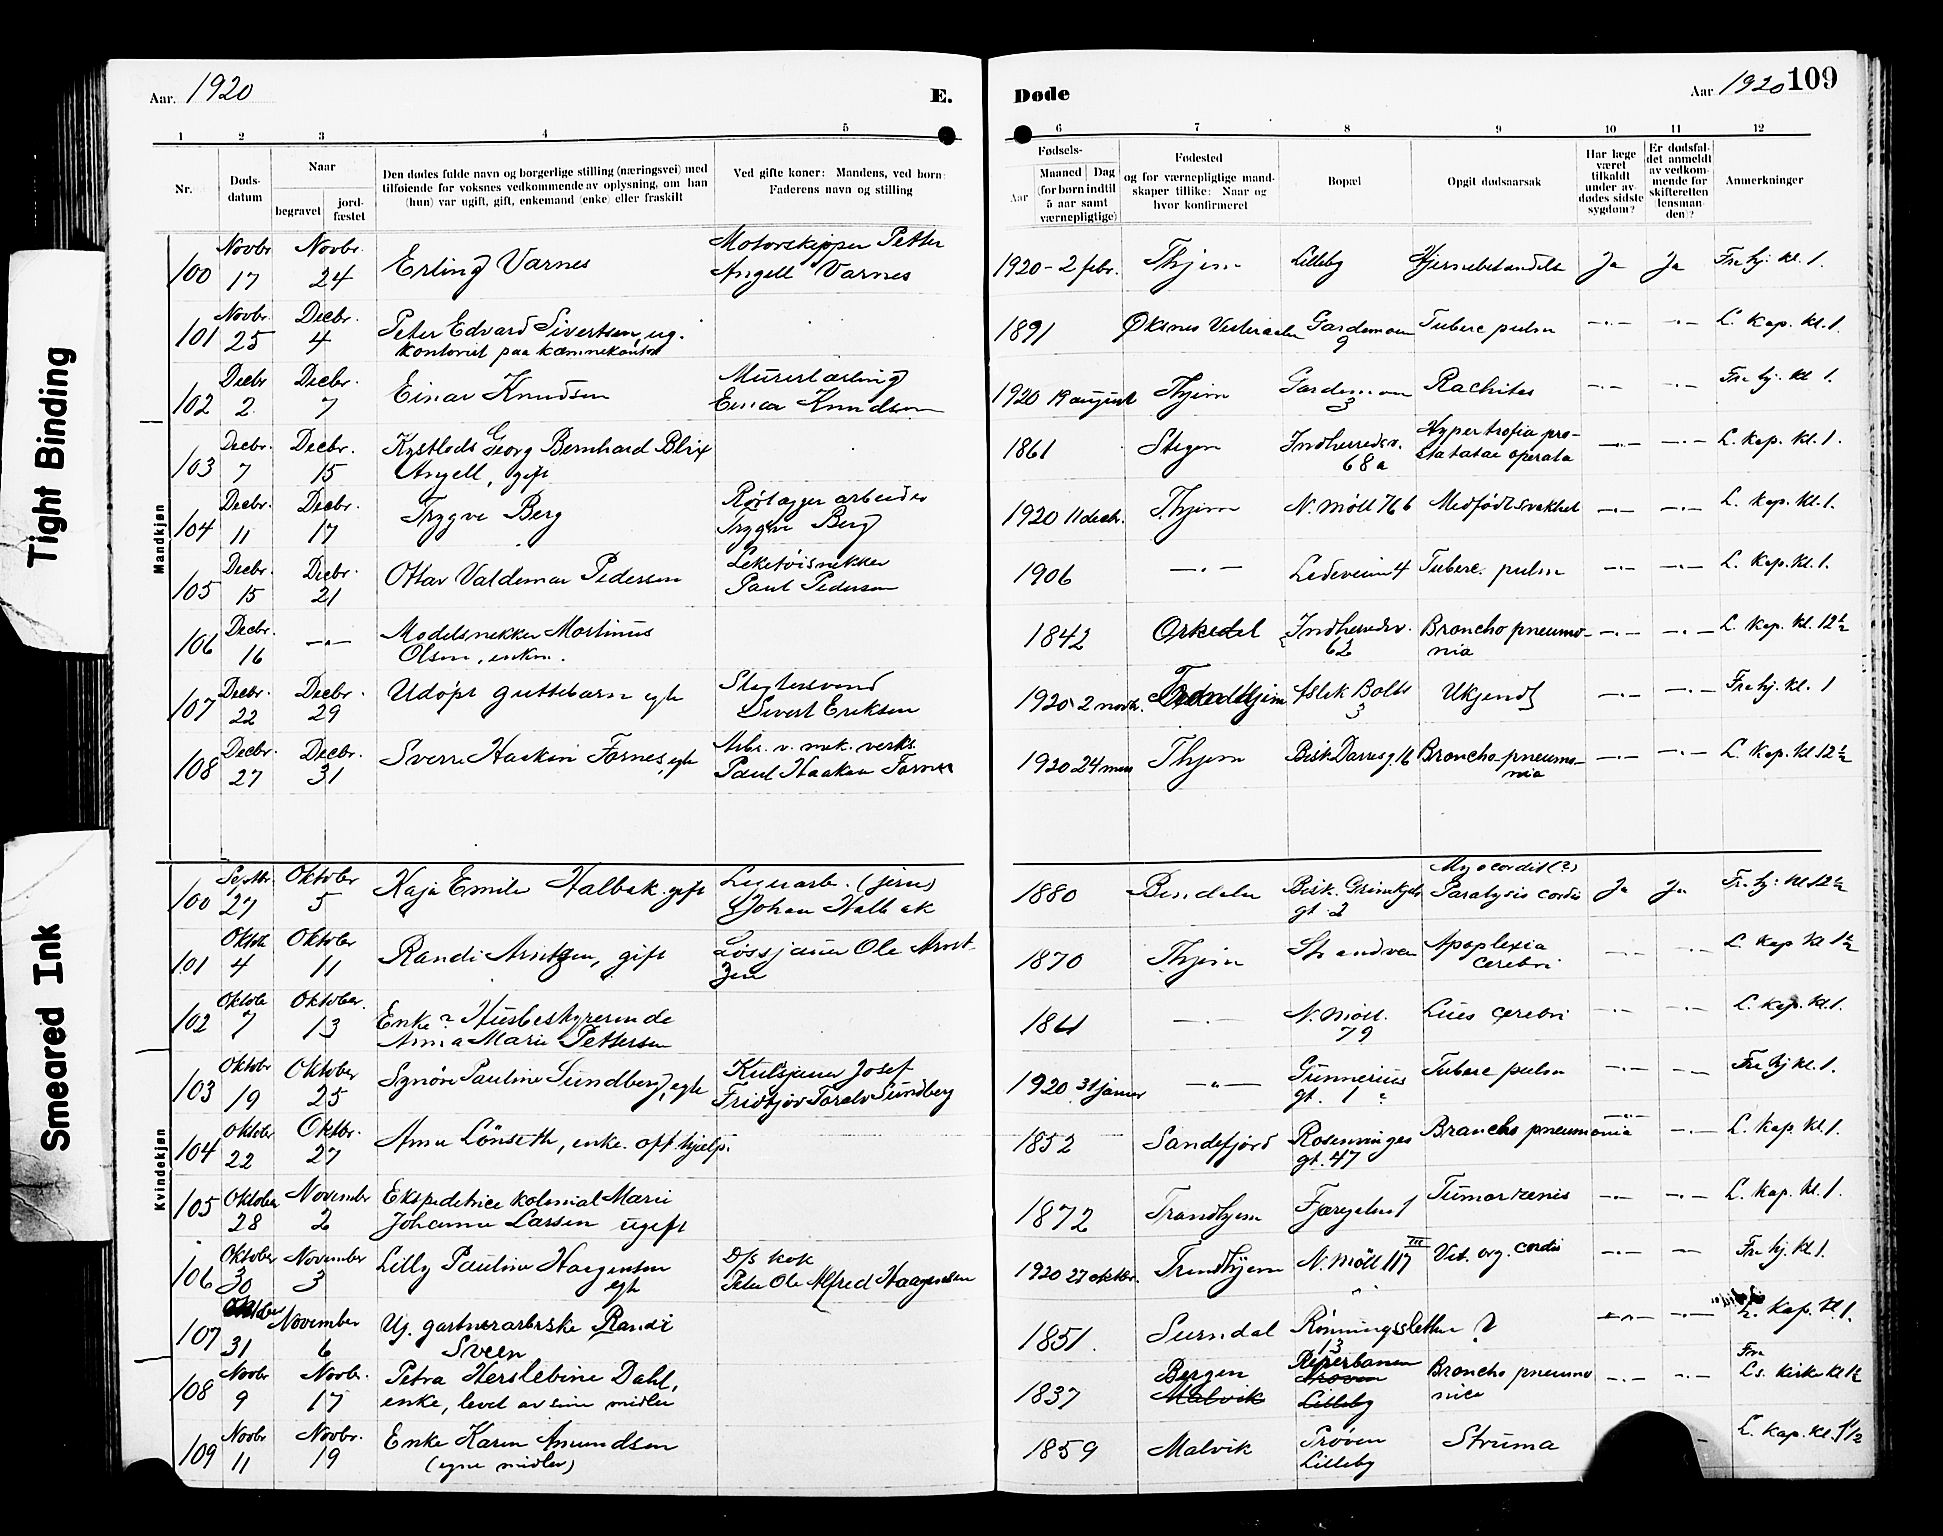 Tight Binding
Smeared Ink
Aar. 1920
E.
Døde
Aar 1920 109
1 2 3 4 5 6 7 8 9 10 11 12
Nr.
Døds-
datum
Naar
begravet
jord-
fæstet
Den dødes fulde navn og borgerlige stilling (næringsvei) med
tilføiende for voksnes vedkommende av oplysning, om han
(hun) var ugift, gift, enkemand (enke) eller fraskilt
Ved gifte koner: Mandens, ved børn:
Faderens navn og stilling
Fødsels-
Aar
Maaned | Dag
(for børn indtil
5 aar samt
værnepligtige)
Fødested
og for værnepligtige mand-
skaper tillike: Naar og
hvor konfirmeret
Bopæl
Opgit dødsaarsak
Har læge
været
tilkaldt
under av-
dødes sidste
sygdom?
Er dødsfal-
det anmeldt
av vedkom-
mende for
skifteretten
(lensman-
den)?
Anmerkninger
Mandkjøn
100 Novbr. 17 Novbr. 24 Erling Varnes Motorskipper Petter
Angell Varnes 1920 - 2 febr. Thjem Lilleby Ja Ja Fra hj. kl. 1.
101 Novbr. 25 Decbr. 4 Peter Edvard Sivertsen, ug.
kontorist paa 1891 Øksnes Gardemoen
9 Tuberc pulm -"- -"- L. kap. kl. 1.
102 Decbr 2. Decbr. 7 Einar Knudsen Murerlærling
Einar Knudsen 1920 19 august Thjem Gardemoen
3 Rachites -"- -"- Fra hj. kl 1.
103 Decbr. 7 Decbr. 15 Kystlods Georg Bernhard Blix
Angell, gift 1861 Stegen Indherredsv.
68a Hypertrofia pro-
statatae operata -"- -"- L. kap. kl. 1.
104 Decbr. 11 Decbr. 17 Trygve Berg Rørlægger arbeider
Trygve Berg 1920 11 decbr. Thjem N. Møll 76 b Medfødt svakhet -"- -"- L. kap. kl. 1.
105 Decbr. 15 Decbr. 21 Ottar Valdemar Pedersen Leketøisnekker
Paul Pedersen 1906 -"- Ladeveien 4 Tuberc. pulm -"- -"- L. kap. kl. 1.
106 Decbr. 16 -"- Modelsnekker Martinus
Olsen, enkem. 1842 Orkedal Indherredsv.
62 Broncho pneumo-
nia -"- -"- L. kap. kl. 12 1/2
107 Decbr. 22 Decbr. 29 Udøpt guttebarn egte Slagtersvend
Sivert Eriksen 1920 2 novb. Trondhjem Aslak Bolts
3 Ukjendt -"- -"- Fra hj. kl. 1
108 Decbr. 27 Decbr. 31 Sverre Haakon Fornes, egte Arb. v. mek. verks.
Paul Haakon Fornes 1920 24 mai Thjem Bisk Darres g. 16 Broncho-pneumo-
nia -"- -"- L. kap. kl 12 1/2
Kvindekjøn
100 Septbr. 27 Oktober 5 Kaja Emilie Halbak gift (jern)
Johan Halbak 1880 Bindalen Bisk. Grimkjels
gt. 2 Myocardit (?)
Paralysis cordis Ja Ja Fra hj. kl 12 1/2
101 Oktob. 4 Oktober 11 Randi Arntzen, gift Løssjauer Ole Arnt-
zen 1870 Thjem Strandvei Apoplexia
cerebri -"- -"- L. kap kl 1 1/2
102 Oktob. 7 Oktober. 13 Enke ? Husbestyrerinde
Anna Marie Pettersen 1861 -"- N. Møll.
79 Lues cerebri -"- -"- L. kap. kl. 1.
103 Oktobr 19 Oktober 25 Synøve Pauline Sundberg, egte Kulsjauer Josef
Fridtjov Toralv Sundberg 1920 31 januar -"- Gunnerius
gt. 1 Tuberc pulm -"- -"- Fra hj kl. 1.
104 Oktober 22 Oktbr. 27 Anne Lønseth, enke. off. hjælp. 1852 Sandefjord Rosenborgs
gt. 47 Broncho pneumonia -"- -"- L. kap. kl. 1.
105 Oktober 28 November 2 Ekspeditrice kolonial Marie
Johanna Larsen ugift 1872 Trondhjem Fjærgaten 1 Tumor renis -"- -"- L. kap. kl. 1.
106 Oktober 30 November 3 Lilly Pauline Haagensen
egte D/S kok
Peter Ole Alfred Haagensen 1920 27 oktbr. Trondhjem N. Møll 117 III Vit. org. cordis -"- -"- Fra hj. kl. 1.
107 Oktober 31 November 6 Ug. gartnerarberske Randi
Sveen 1851. Surndal Rønningsletten
13 ? -"- -"- L. kap. kl. 1.
108 Novbr 9 Novbr. 17 Petra Herslebine Dahl,
enke, levet av sine midler 1837 Bergen
Malvik Reperbanen
Prøven
Lilleby Broncho pneumo
nia -"- -"- Fra
La. kirke kl 1 1/2
109 Novbr 11 Novbr. 19 Enke Karen Amundsen
(egne midler) 1859 Malvik Prøven
Lilleby Struma - L. kap. kl. 1 1/2